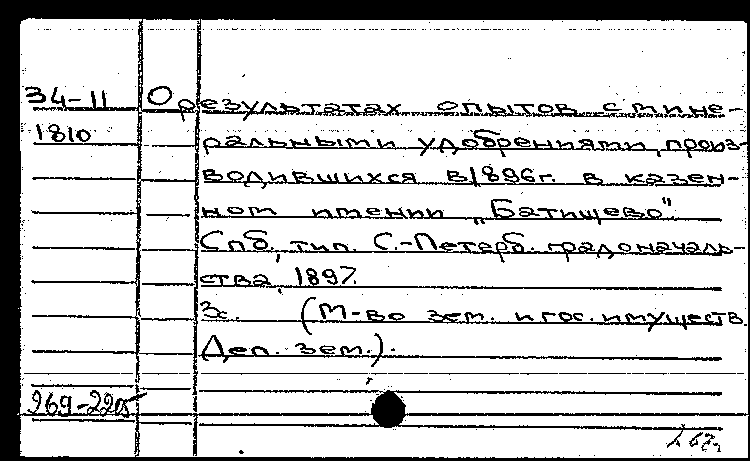 34-11 О результатах опытов с мине-
1810 ральными удобрениями, произ-
водившихся в 1896г. в казен-
ном имении „Батищево".
Спб., тип. С.-Петерб. градоначаль-
ства, 1897.
3с. (М-во зем. и гос. имуществ.
Деп. зем.).
969-2205